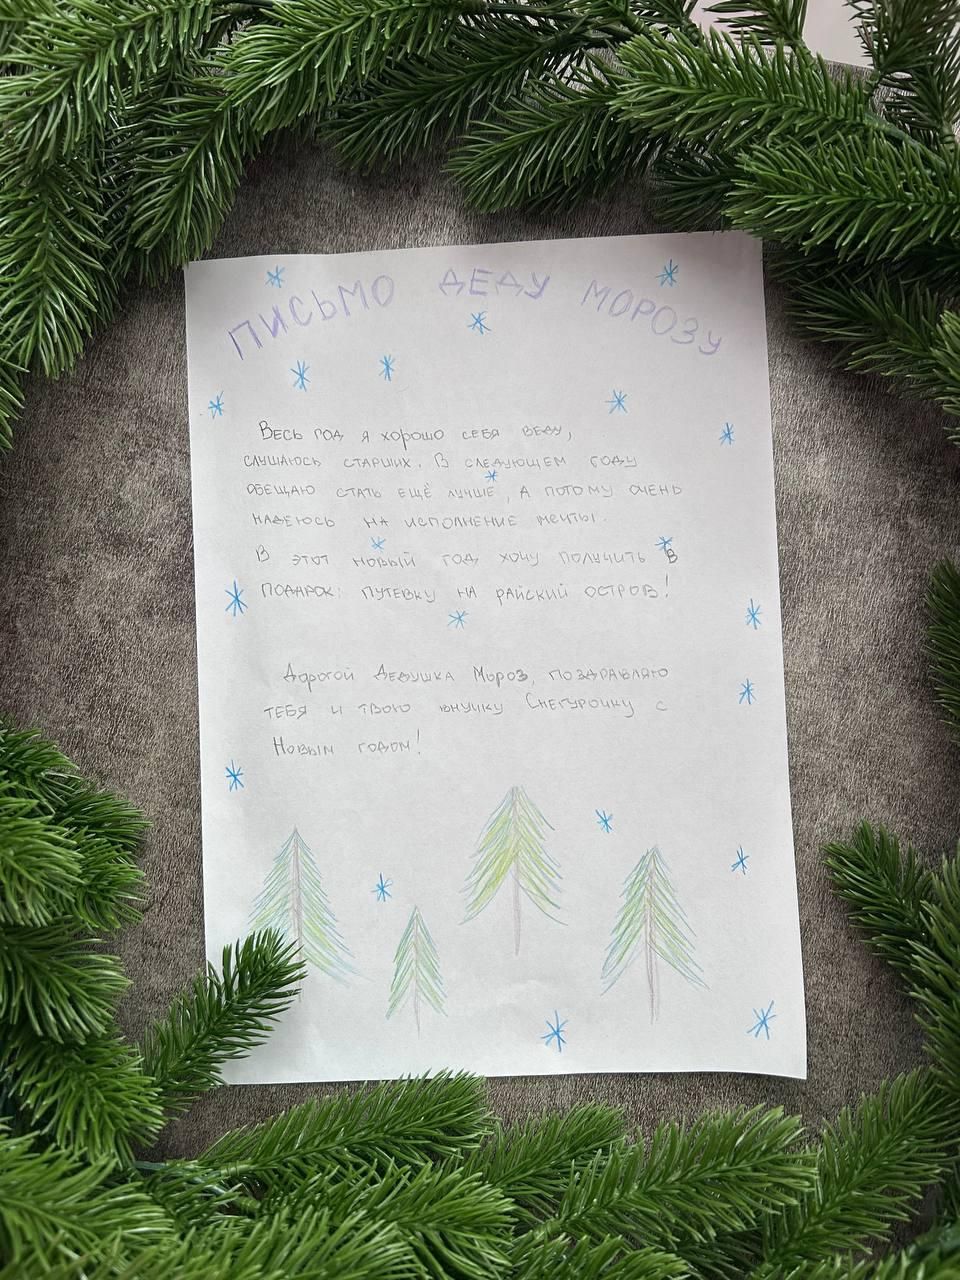 ПИСЬМО ДЕДУ МОРОЗУ
Весь год я хорошо себя веду,
слушаюсь старших. В следующем году
обещаю стать ещё лучше, а потому очень
надеюсь на исполнение мечты.
В этот новый год хочу получить в
подарок: путевку на райский остров!
Дорогой Дедушка Мороз, поздравляю
тебя и твою внучку Снегурочку с
Новым годом!